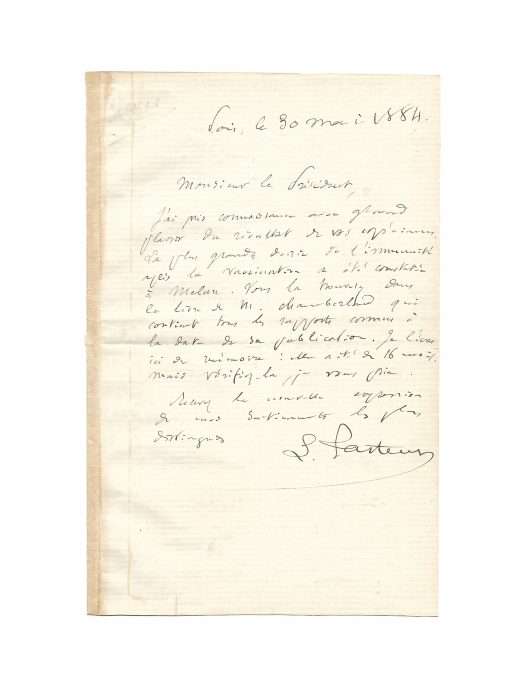 Paris, le 30 mai 1884.
Monsieur le Président,
J'ai pris connaissance avec grand
plaisir du résultat de vos expériences.
La plus grande durée de l'immunité
après la vaccination a été constatée
à Melun. Vous la trouverez dans
le livre de M. Chamberland qui
contient tous les rapports connus à
la date de sa publication. Je l'écris
ici de mémoire : elle a été de 16 mois,
mais vérifiez-la, je vous prie.
Recevez la nouvelle expression
de mes sentiments les plus
distingués
L. Pasteur